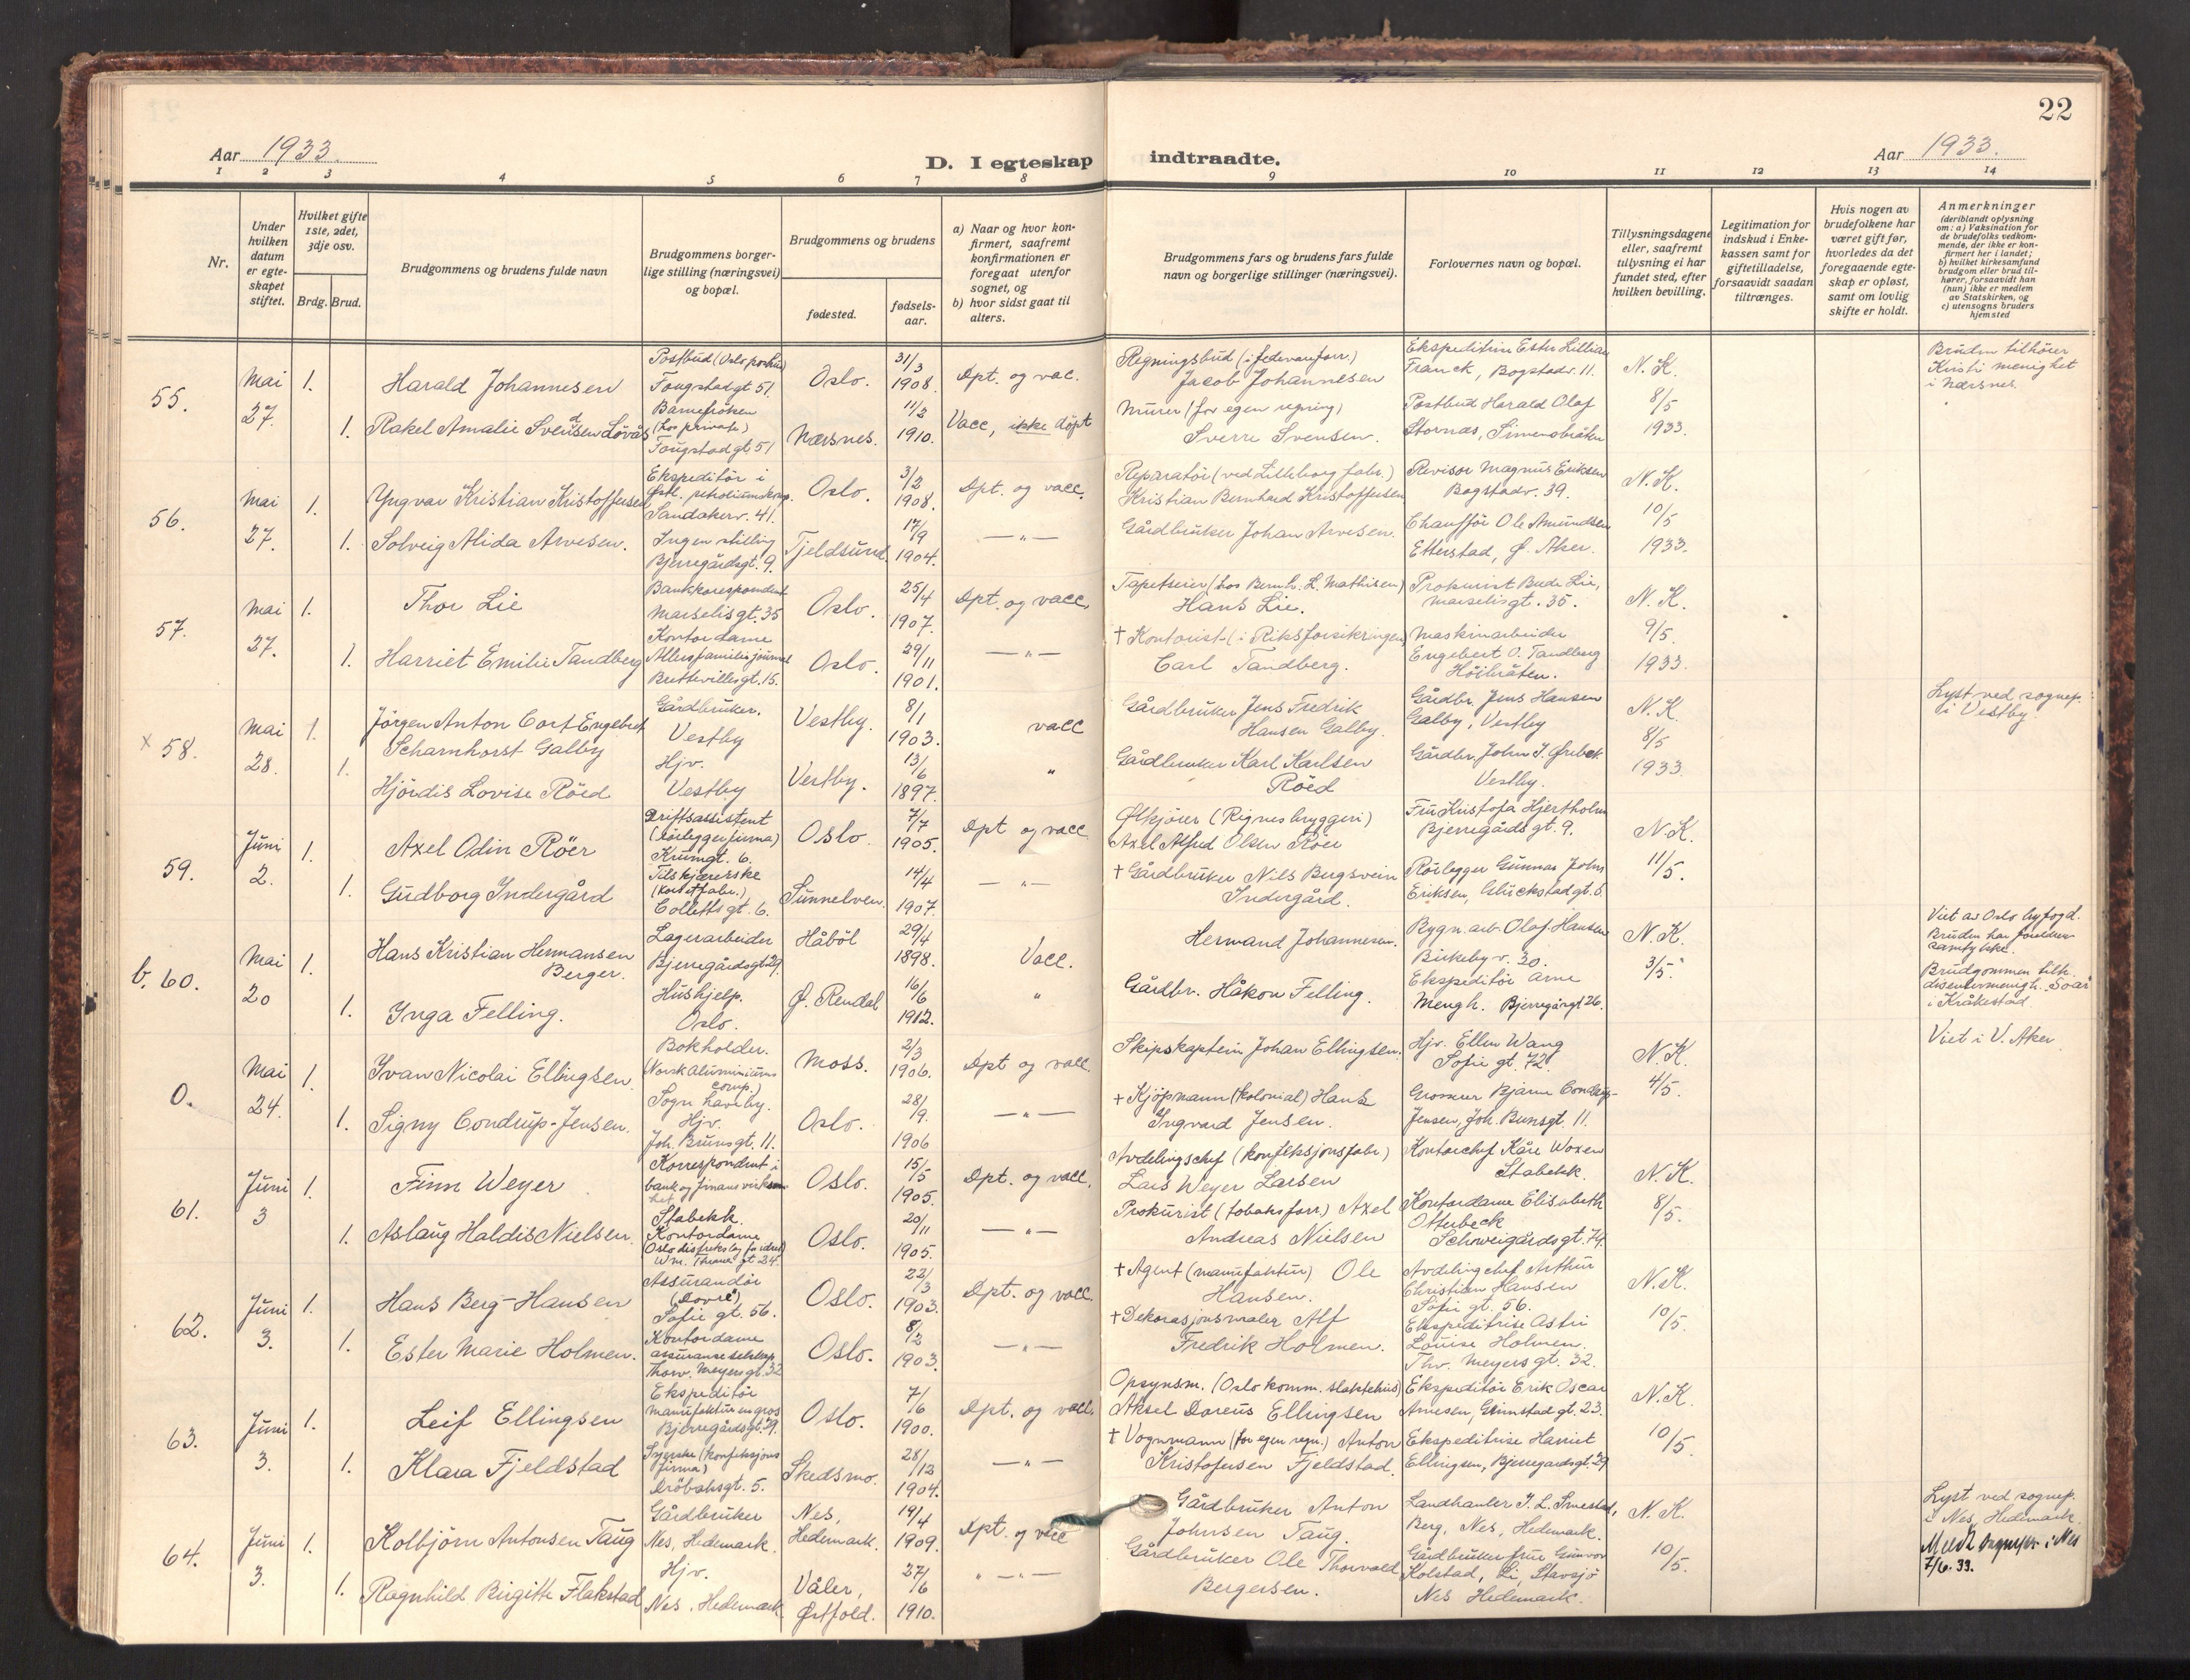 22
Aar 1933.
D. I egteskap indtraadte.
Aar 1933.
1 2 3 4 5 6 7 8 9 10 11 12 13 14
Nr.
Under
hvilken
datum
er egte-
skapet
stiftet.
Hvilket gifte
1ste, 2det,
3dje osv.
Brdg. Brud.
Brudgommens og brudens fulde navn
Brudgommens borger-
lige stilling (næringsvei)
og bopæl.
Brudgommens og brudens
fødested.
fødsels-
aar.
a) Naar og hvor kon-
firmert, saafremt
konfirmationen er
foregaat utenfor
sognet, og
b) hvor sidst gaat til
alters.
Brudgommens fars og brudens fars fulde
navn og borgerlige stillinger (næringsvei).
Forlovernes navn og bopæl.
Tillysningsdagene
eller, saafremt
tillysning ei har
fundet sted, efter
hvilken bevilling.
Legitimation for
indskud i Enke-
kassen samt for
giftetilladelse,
forsaavidt saadan
tiltrænges.
Hvis nogen av
brudefolkene har
været gift før,
hvorledes da det
foregaaende egte-
skap er opløst,
samt om lovlig
skifte er holdt.
Anmerkninger
(deriblandt oplysning
om: a) Vaksination for
de brudefolks vedkom-
mende, der ikke er kon-
firmert her i landet;
b) hvilket kirkesamfund
brudgom eller brud til-
hører, forsaavidt han
(hun) ikke er medlem
av Statskirken, og
c) utensogns bruders
hjemsted
55.
Mai
27.
1.
Harald Johannesen
Postbud (Oslo posthus)
Fougstadgt 51.
Oslo.
31/3
1908.
Dpt. og vac.
Regningsbud (i
Jacob Johannesen
Ekspeditrise Ester Lillian
Franck, Bogstadv. 11.
N. K.
8/5
1933.
Bruden tilhører
Kristi menighet
i Nærsnes.
1.
Rakel Amalie Svendsen Løvås
Barnefrøken
(hos private)
Fougstadgt 51
Nærsnes.
11/2
1910.
Vacc, ikke döpt
Murer (for egen regning)
Sverre Svensen.
Postbud Harald Olaf
Stornæs, Simensbråten
56.
Mai
27.
1.
Yngvar Kristian Kristoffersen
Ekspeditör i
Østl. petroliumskomp.
Sandakerv. 41.
Oslo.
3/2
1908.
Dpt. og vacc.
Reparatör (ved Lilleborg fabr.)
Kristian Bernhard Kristoffersen
Revisor Magnus Eriksen
Bogstadv. 39.
N. K.
10/5
1933.
1.
Solveig Alida Arvesen.
Ingen stilling
Bjerregårdsgt. 9.
Tjeldsund.
17/9
1904.
— " —
Gårdbruker Johan Arvesen.
Chaufför Ole Amundsen
Etterstad, Ø. Aker.
57.
Mai
27.
1.
Thor Lie
Bankkorespondent
Marselisgt. 35
Oslo.
25/4
1907.
Dpt. og vacc.
Tapetserer (hos Bernh. L. Mathisen)
Hans Lie.
Prokurist Lie,
Marselisgt. 35.
N. K.
9/5.
1933.
1.
Harriet Emilie Tandberg
Kontordame
Allersfamiliejournal
Brettevillesgt. 15.
Oslo.
29/11
1901.
— " —
† Kontorist (i Riksforsikringen)
Carl Tandberg.
Maskinarbeider
Engebert O. Tandberg
Höibråten.
x 58.
Mai
28.
1.
Jörgen Anton Cort Engebret
Scharnhorst Galby
Gårdbruker.
Vestby
Vestby.
8/1
1903.
vacc
Gårdbruker Jens Fredrik
Hansen Galby.
Gårdbr. Jens Hansen
Galby, Vestby
N. K.
8/5
1933.
Lyst ved sognep.
i Vestby
1.
Hjördis Lovise Röed
Hjv.
Vestby
Vestby.
13/6
1897.
"
Gårdbruker Karl Karlsen
Röed
Gårdbr. John J. Ørebek
Vestby.
59.
Juni
2.
1.
Axel Odin Röer
Driftsassistent
(rörleggerfirma)
Krumgt. 6.
Oslo.
7/7
1905.
Dpt og vacc.
Ølkjörer (Rignes bryggeri)
Axel Alfred Olsen Röer
Fru Kristofa Hjertholm
Bjerregårdsgt. 9.
N. K.
11/5.
1.
Gudborg Indergård
Tilskjærerske
(korsettfabr.)
Collettsgt. 6.
Sunnelven.
14/4
1907.
— " —
† Gårdbruker Nils Bergsvein
Indergård.
Rörlegger Gunnar Johs
Eriksen, Glückstadgt. 6.
b. 60.
Mai
20
1.
Hans Kristian Hermansen
Berger.
Lagerarbeider
Bjerregårdsgt 29.
Håböl
29/4
1898.
Vacc.
Hermand Johannesen.
Bygn. arb. Olaf Hansen
Birkeby v. 30.
N. K.
3/5.
Viet av Oslo byfogd.
Bruden har foreldres
samtykke.
Brudgommen tilh.
dissentermenigh. Soar
i Kråkestad
1.
Inga Felling.
Hushjelp.
Oslo.
Ø. Rendal
16/6
1912.
"
Gårdbr. Håkon Felling.
Ekspeditör Arne
Mengh. Bjerregårgt 26.
0.
Mai
24.
1.
Ivan Nicolai Ellingsen.
Bokholder.
(Norsk Aluminiums
comp.)
Sogn haveby.
Moss.
2/3
1906.
Dpt og vacc.
Skipskaptein Johan Ellingsen.
Hjv. Ellen Wang
Sofie gt. 72.
N. K.
4/5.
Viet i V. Aker
1.
Signy Condrup-Jensen.
Hjv.
Joh. Brunsgt. 11.
Oslo.
28/9.
1906
— " —
† Kjöpmann (kolonial) Hans
Ingvard Jensen.
Grosserer Bjarne Condrup-
Jensen, Joh. Bunsgt. 11.
61.
Juni
3
1.
Finn Weyer
Korrespondent i
bank og finansvirksom
het
Stabekk.
Oslo.
15/5
1905.
Dpt. og vacc.
Avdelingschef (konfeksjonsfabr.)
Lars Weyer Larsen
Kontorchef Kåre Woxen
Stabekk.
N. K.
8/5.
1.
Aslaug Haldis Nielsen.
Kontordame
Wm. Thranes gt 24.
Oslo.
20/11
1905.
— " —
Prokurist (tobaksforr.) Axel
Andreas Nielsen
Kontordame Elisabeth
Otterbeck
Schweigårdsgt. 74.
62.
Juni
3.
1.
Hans Berg-Hansen
Assurandör
(Dovre)
Sofie gt. 56.
Oslo.
22/3
1903.
Dpt. og vacc.
† Agent (manufaktur) Ole
Hansen.
Avdelingchef Arthur
Christian Hansen
Sofie gt. 56.
N. K.
10/5.
1.
Ester Marie Holmen.
Kontordame
assuranseselskap
Thorv. Meyersgt. 32
Oslo.
8/2
1903.
— " —
† Dekorasjonsmaler Alf
Fredrik Holmen.
Ekspeditrise Astri
Louise Holmen.
Thv. Meyersgt. 32.
63.
Juni
3.
1.
Leif Ellingsen
Ekspeditör
manufaktur en gros
Bjerregårdsgt. 29.
Oslo.
7/6
1900.
Dpt. og vacc.
Opsynsm. (Oslo komm. slaktehus)
Aksel Doreus Ellingsen
Ekspeditör Erik Oscar
Arnesen, Grimstad gt. 23.
N. K.
10/5.
1.
Klara Fjeldstad
Syerske (konfeksjons
firma)
Dröbaksgt. 5.
Skedsmo.
28/12
1904.
— " —
† Vognmann (for egen regn.) Anton
Kristofersen Fjeldstad.
Ekspeditrise Harriet
Ellingsen, Bjerregårdsgt. 29
64.
Juni
3.
1.
Kolbjörn Antonsen Taug
Gårdbruker
Nes, Hedemark.
Nes,
Hedemark.
14/4
1909.
Dpt. og vacc
Gårdbruker Anton
Johnsen Taug.
Landhandler J. L. Smestad,
Berg, Nes, Hedemark.
N. K.
10/5.
Lyst ved sognep.
i Nes, Hedemark.
Meldt sognepr. i Nes
7/6. 33.
1.
Ragnhild Birgitte Flakstad
Hjv.
Nes, Hedemark
Våler,
Østfold.
27/6
1910.
" — " —
Gårdbruker Ole Thorvald
Bergersen.
Gårdbruker frue Gunvor
Kolstad, Li, Stavsjö
Nes Hedemark.